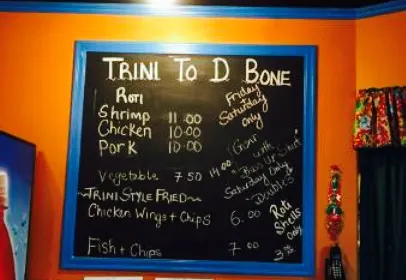 TRINI TO D BONE
Roti
Shrimp 11.00
Chicken 10.00
Pork 10.00
Vegetable 7 50
Friday
Saturday
only
Goat
with
14.00 "Buss Up Shut"
Saturday Only
Doubles
TRINI STYLE FRIED
Chicken Wings + Chips 6.00
Fish + Chips 7 00
Roti
Shells
Only